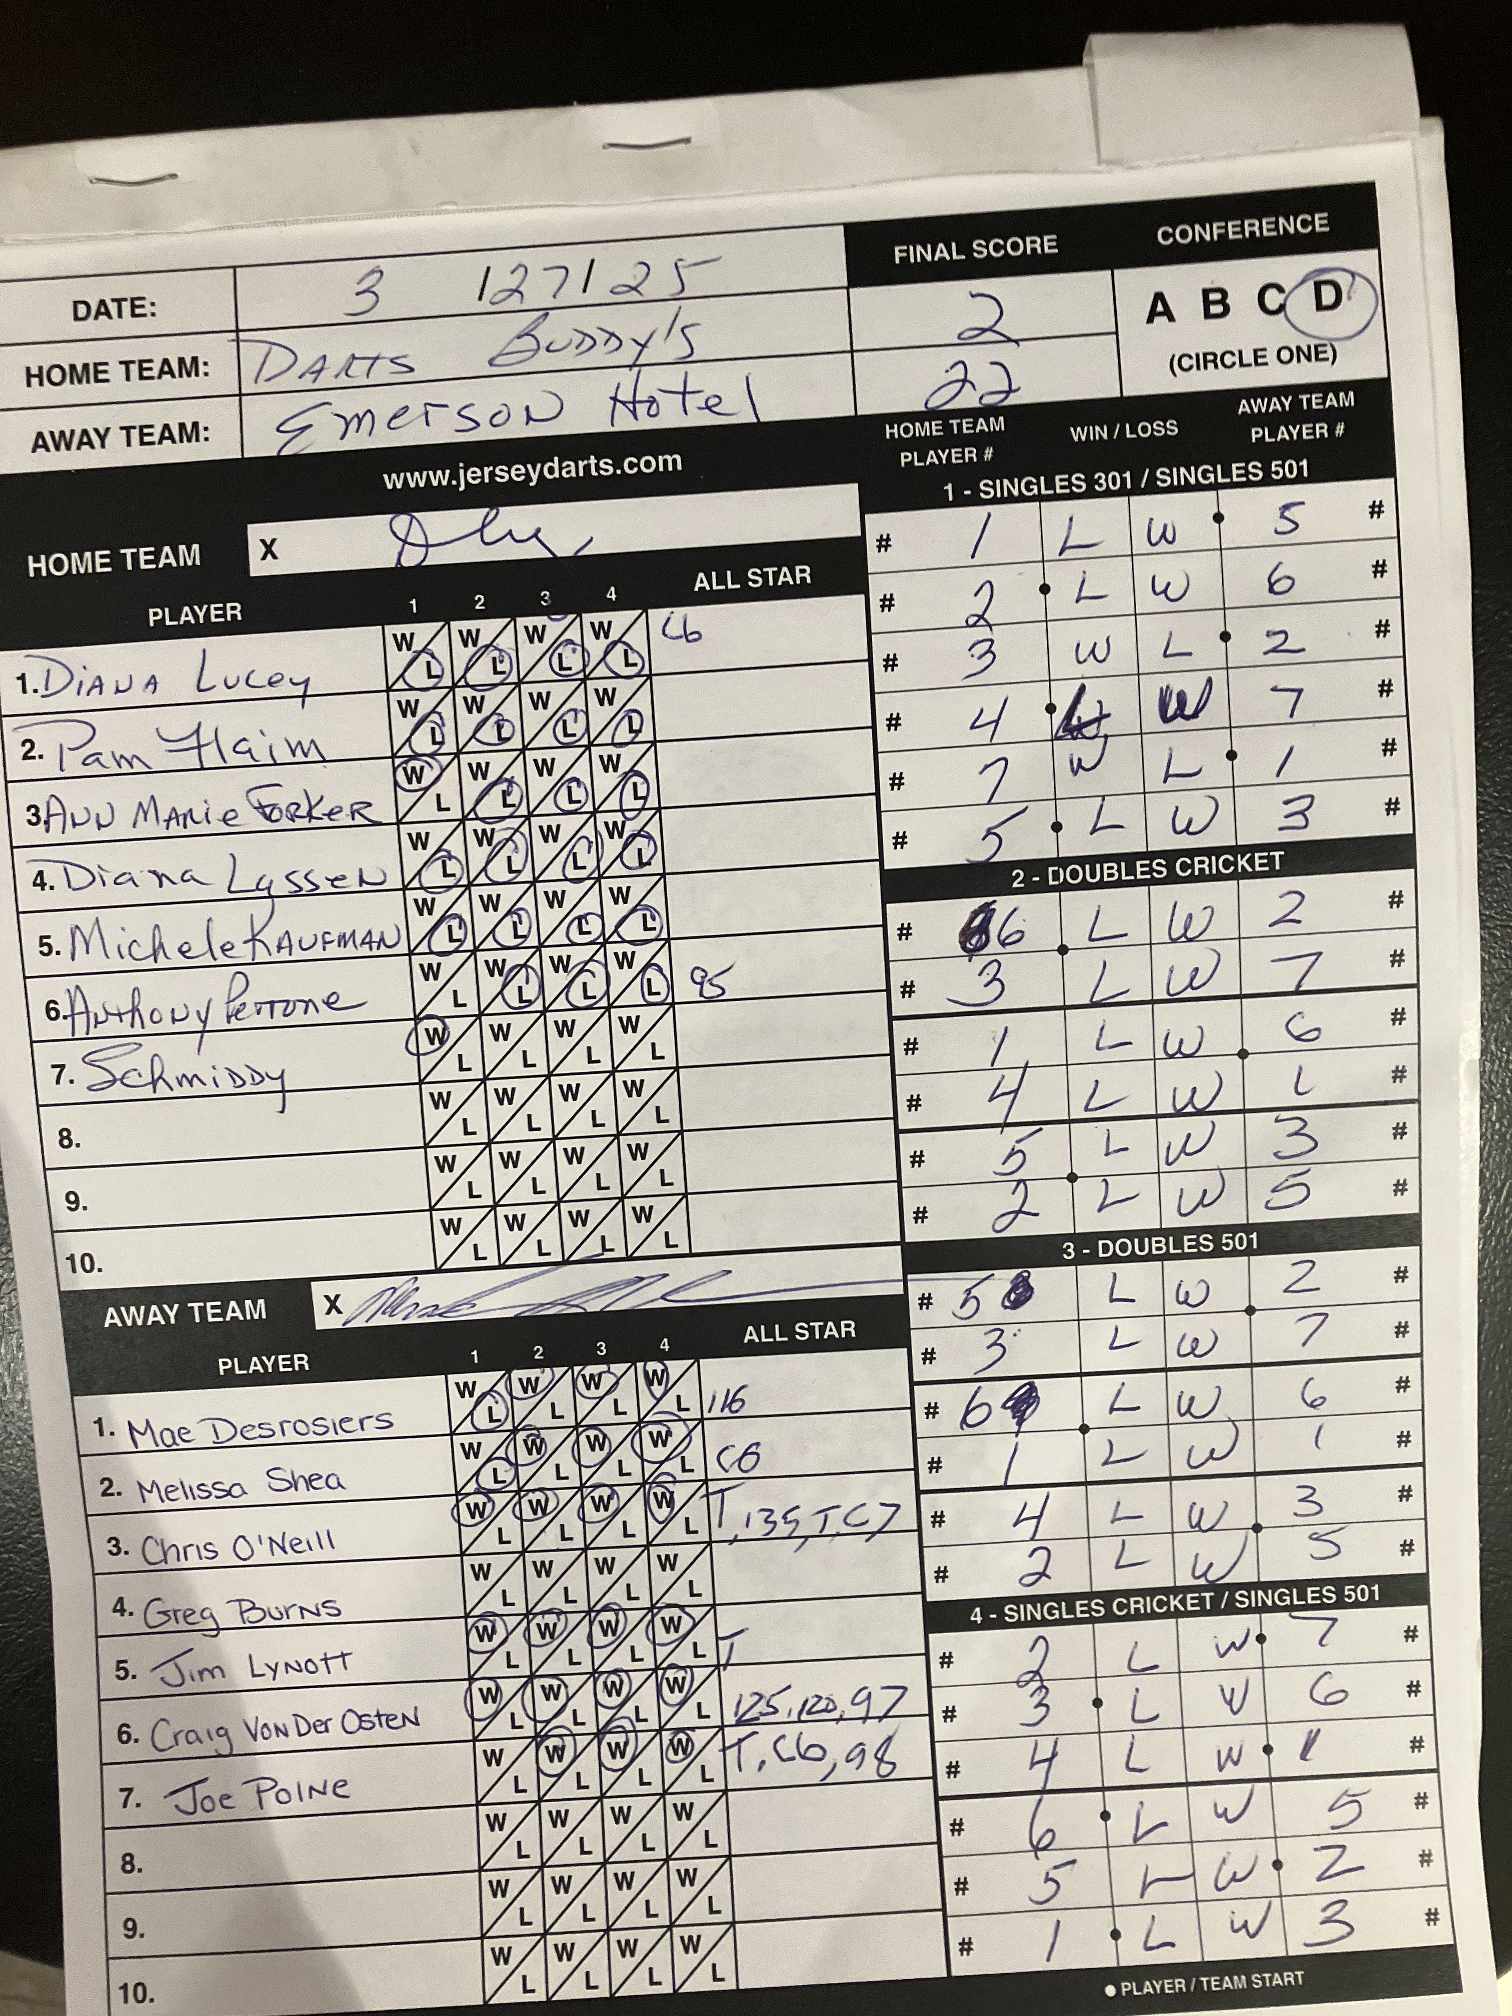 FINAL SCORE CONFERENCE
DATE: 3 127125 2 A B C D
HOME TEAM: DARTS BUDDY'S (CIRCLE ONE)
AWAY TEAM: Emerson Hotel 22
www.jerseydarts.com
HOME TEAM X
PLAYER 1 2 3 4 ALL STAR
1. DIANA LUCEY W L W L W L W L C6
2. Pam Flaim W L W L W L W L
3. ANN MARIE FORKER W L W L W L W L
4. Diana Lassen W L W L W L W L
5. Michele KAUFMAN W L W L W L W L
6. ANTHONY Perrone W L W L W L W L 95
7. SCHMIDDY W L W L W L W L
8. W L W L W L W L
9. W L W L W L W L
10. W L W L W L W L
AWAY TEAM X
PLAYER 1 2 3 4 ALL STAR
1. Mae Desrosiers W L W L W L W L 116
2. Melissa Shea W L W L W L W L C6
3. Chris O'Neill W L W L W L W L T, 135, T, C7
4. Greg Burns W L W L W L W L
5. Jim Lynott W L W L W L W L T
6. Craig VonDer Osten W L W L W L W L 125, 120, 97
7. Joe Poine W L W L W L W L T, C6, 98
8. W L W L W L W L
9. W L W L W L W L
10. W L W L W L W L
HOME TEAM PLAYER # WIN / LOSS AWAY TEAM PLAYER #
1 - SINGLES 301 / SINGLES 501
# 1 L W 5 #
# 2 L W 6 #
# 3 W L 2 #
# 4 W 7 #
# 7 W L 1 #
# 5 L W 3 #
2 - DOUBLES CRICKET
# 6 L W 2 #
# 3 L W 7 #
# 1 L W 6 #
# 4 L W 1 #
# 5 L W 3 #
# 2 L W 5 #
3 - DOUBLES 501
# 5 L W 2 #
# 3 L W 7 #
# 6 L W 6 #
# 1 L W 1 #
# 4 L W 3 #
# 2 L W 5 #
4 - SINGLES CRICKET / SINGLES 501
# 2 L W 7 #
# 3 L W 6 #
# 4 L W 1 #
# 6 L W 5 #
# 5 L W 2 #
# 1 L W 3 #
PLAYER / TEAM START